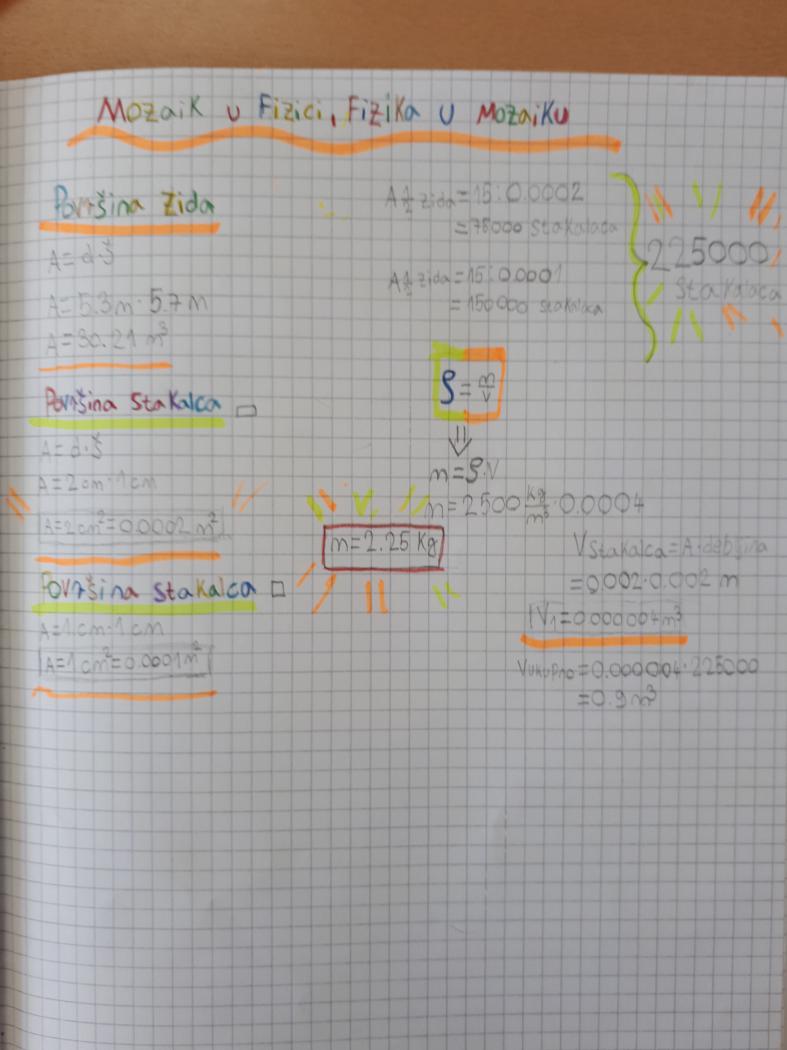 Mozaik u Fizici, Fizika u Mozaiku
Površina Zida
A=d·š
A=5.3m·5.7m
A=30.21 m³
Površina stakalca
A=d·š
A=2cm·1cm
A=2cm²=0.0002 m²
Površina stakalca
A=1cm·1cm
A=1cm²=0.0001m²
A½ zida=15:0.0002
=75000 stakalaca
A½ zida=15:0.0001
=150000 stakalca
225000
stakalaca
ρ=m/v
m=ρ·V
m=2500 kg/m³·0.0004
m=2.25 kg
Vstakalca=A·debljina
=0.002·0.002 m
V₁=0.000004m³
Vukupno=0.000004·225000
=0.9m³